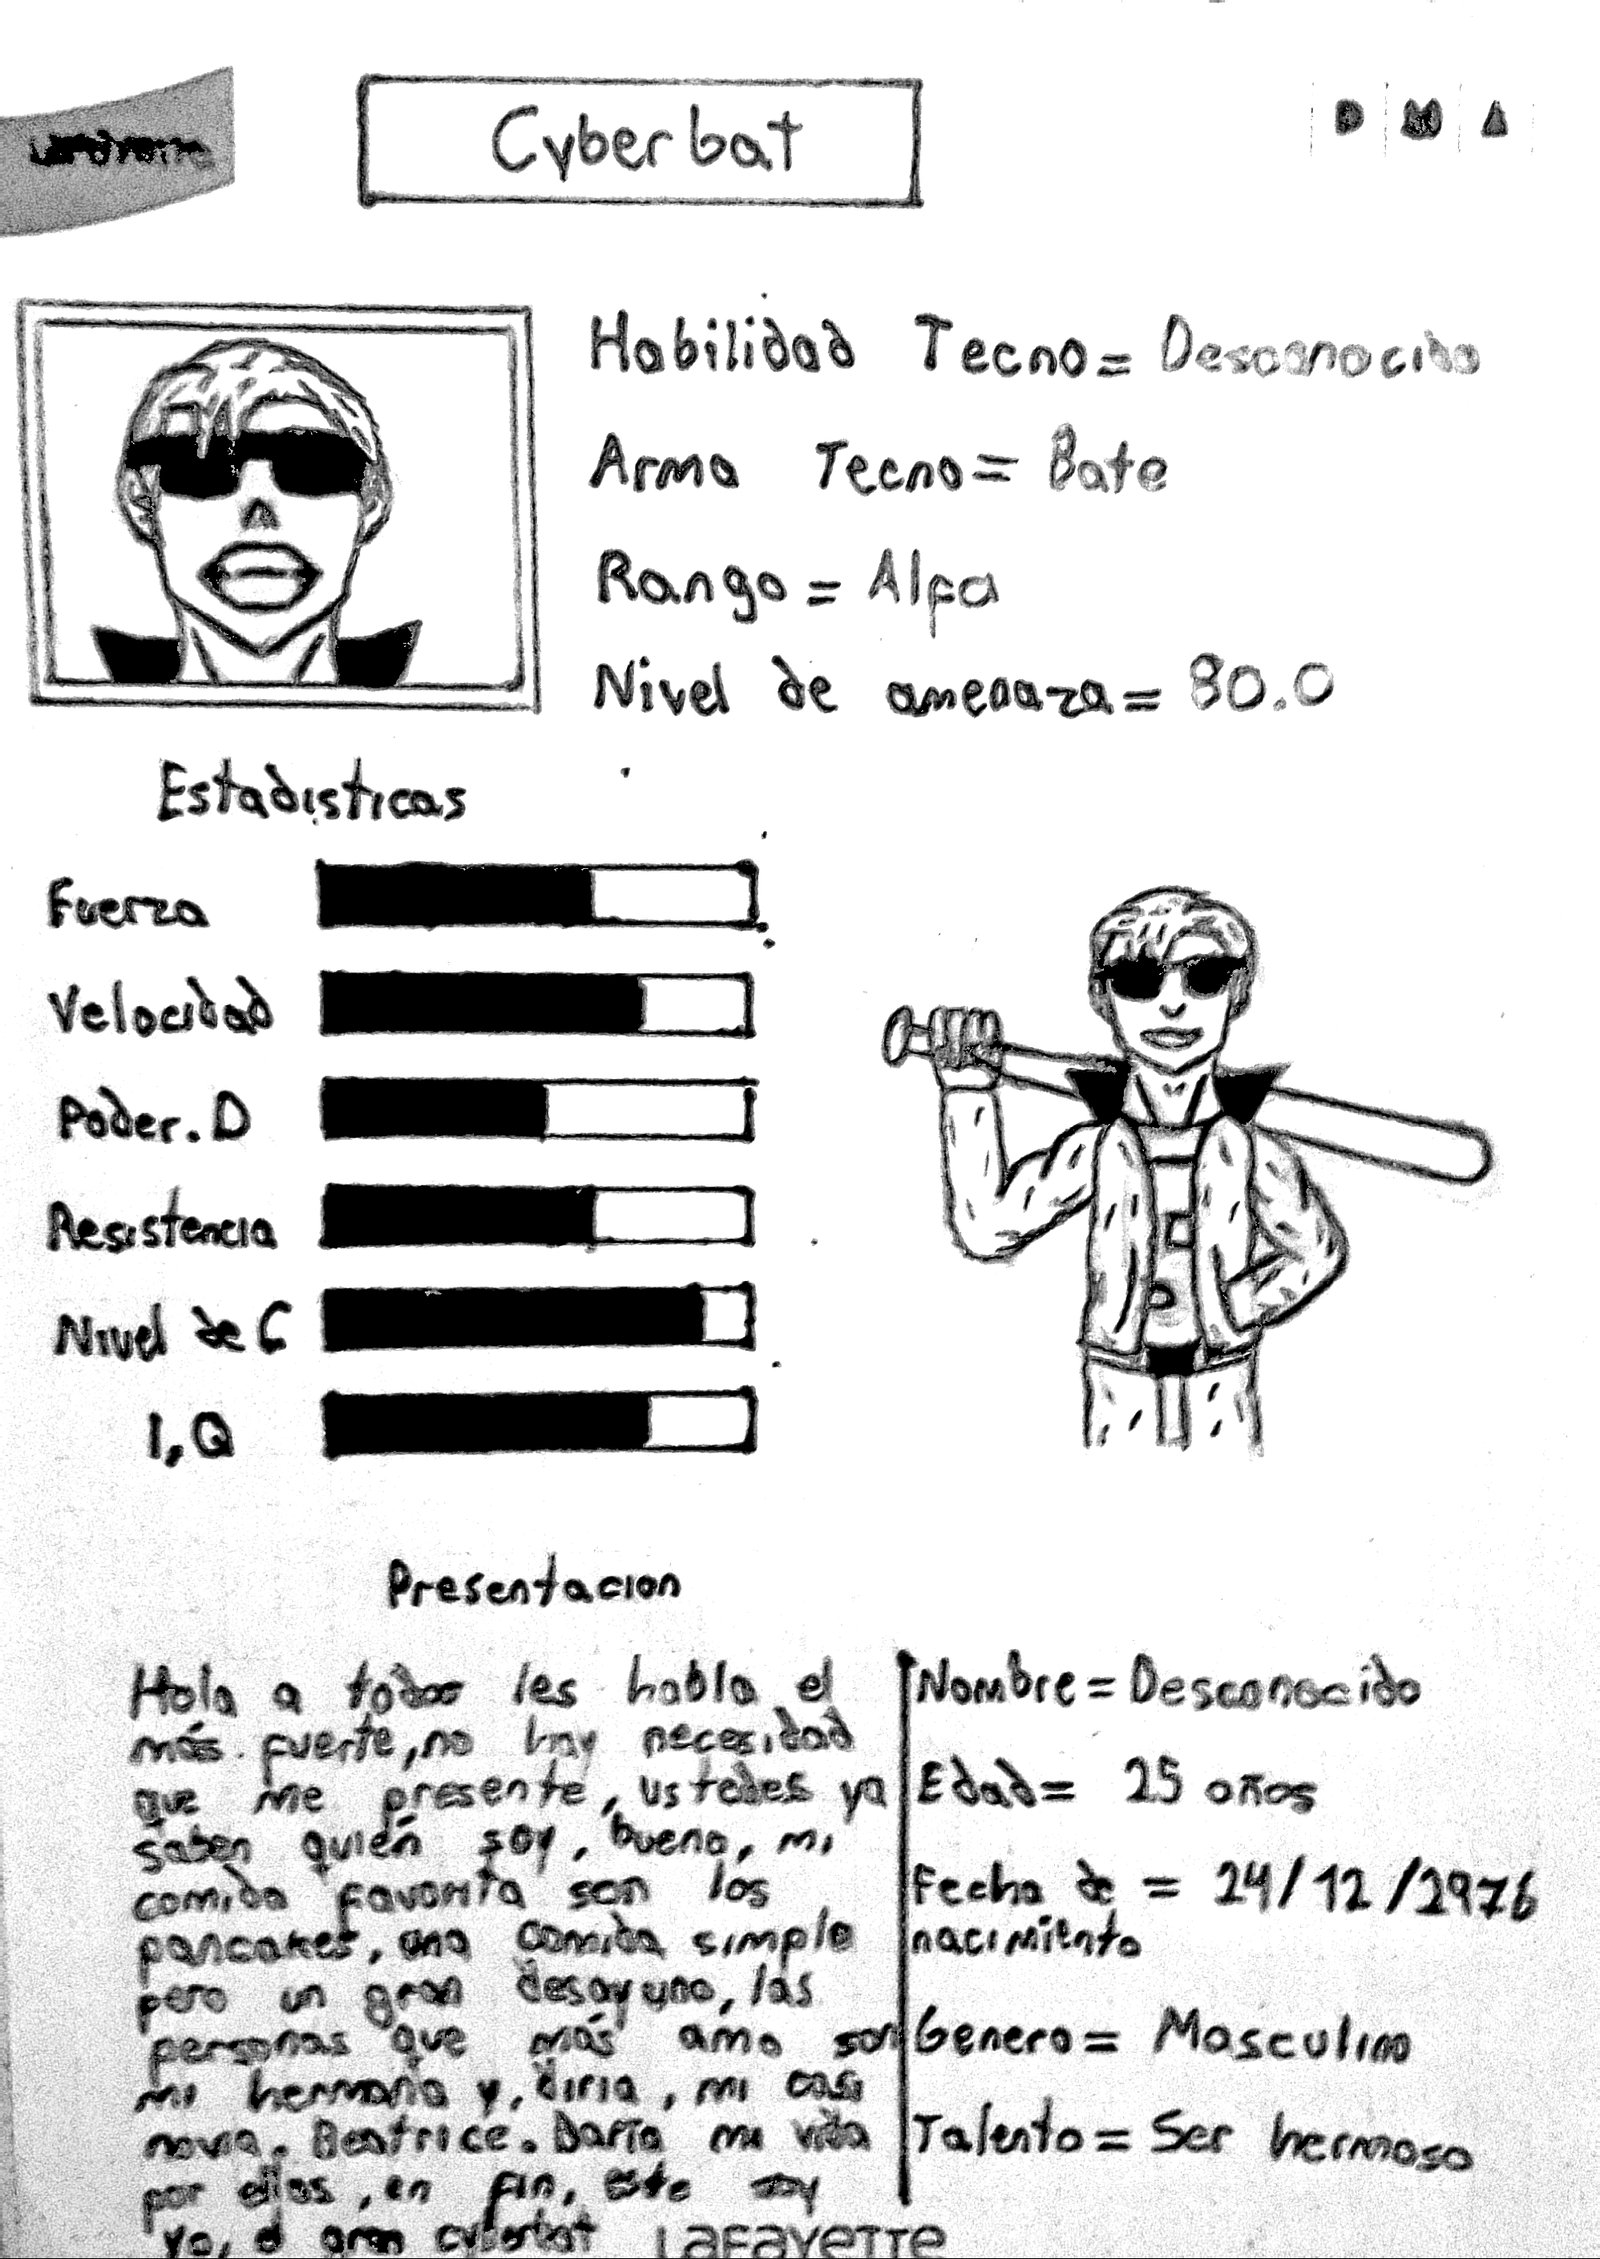 Cyberbat
D M A
Habilidad Tecno= Desconocido
Arma Tecno= Bate
Rango= Alfa
Nivel de amenaza= 80.0
Estadisticas
Fuerza
Velocidad
Poder. D
Resistencia
Nivel de C
I,Q
Presentacion
Hola a todos les habla el
más fuerte, no hay necesidad
que me presente, ustedes ya
saben quién soy, bueno, mi
comida favorita son los
pancakes, una comida simple
pero un gran desayuno, las
personas que más amo son
mi hermana y, diria, mi casi
novia. Beatrice. Daría mi vida
por ellas, en fin, este soy
yo, el gran cyberbat
Nombre= Desconocido
Edad= 25 años
Fecha de = 24/12/2976
nacimiento
Genero= Masculino
Talento= Ser hermoso
LAFAYETTE